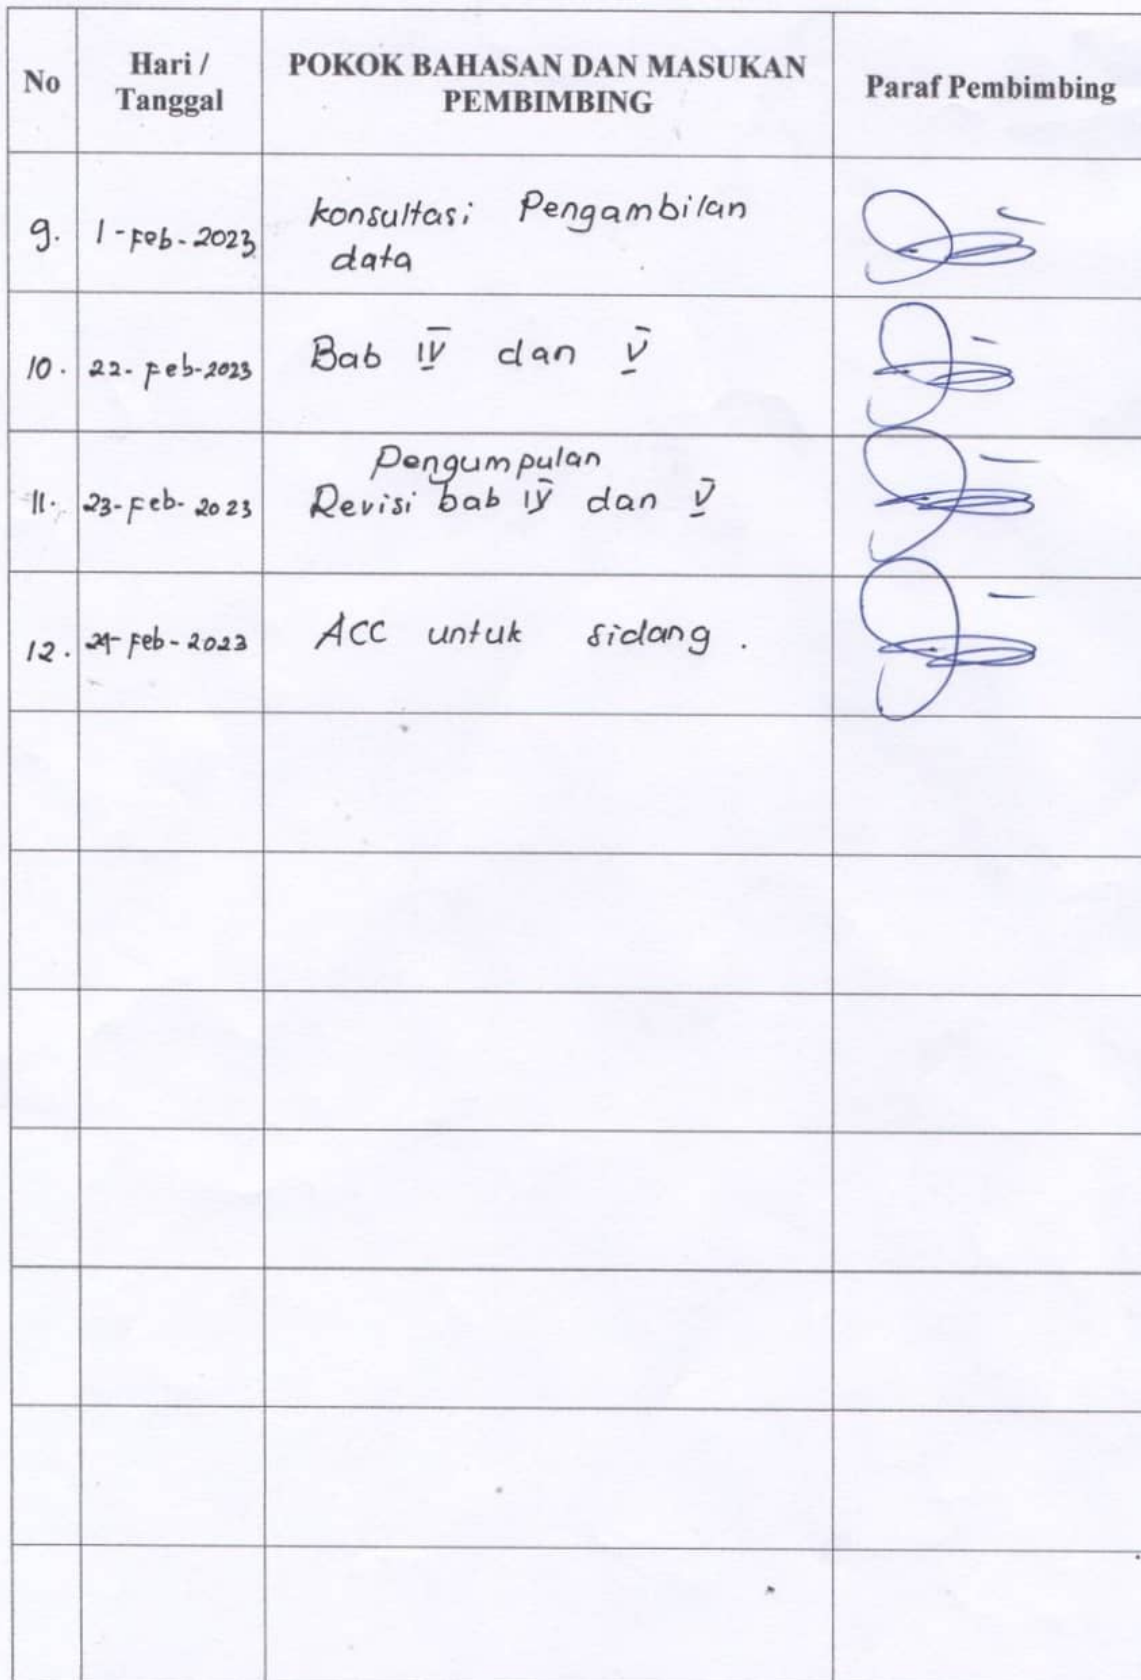 No
Hari /
Tanggal
POKOK BAHASAN DAN MASUKAN
PEMBIMBING
Paraf Pembimbing
9.
1-Feb-2023
konsultasi Pengambilan
data
10.
22-Feb-2023
Bab IV dan V
11.
23-Feb-2023
Pengumpulan
Revisi bab IV dan V
12.
24-Feb-2023
ACC untuk sidang.